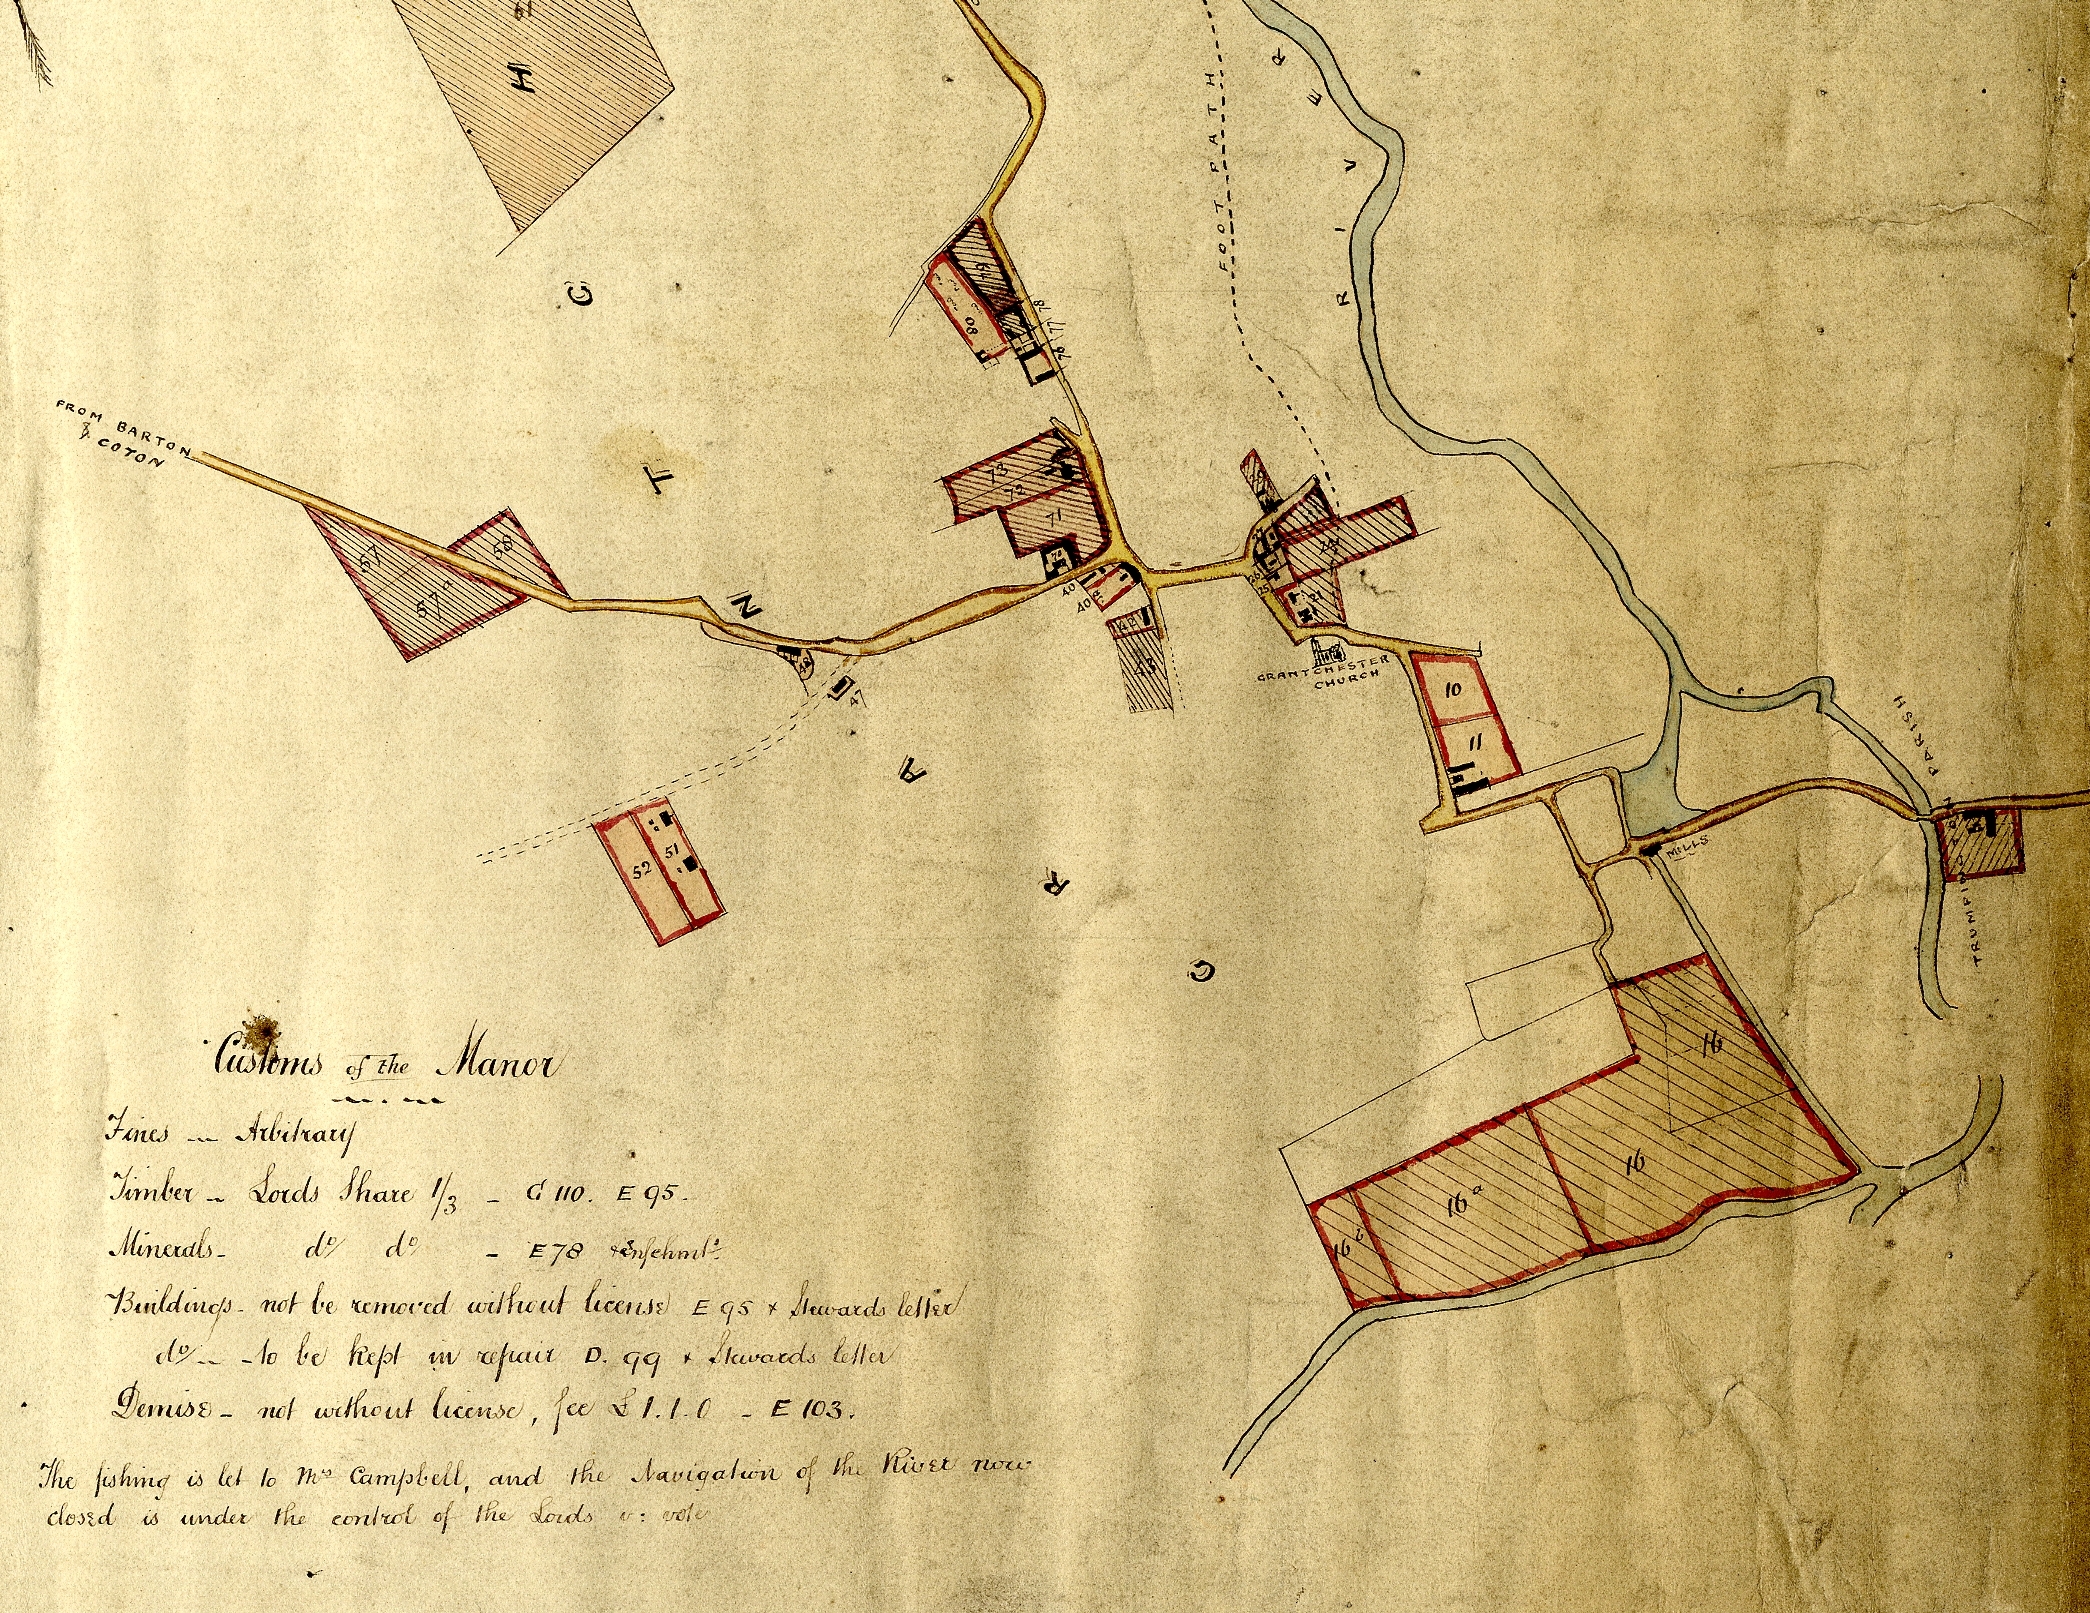 61
H
C
T
N
A
R
G
RIVER
FOOT PATH
FROM BARTON
& COTON
79
80
78
77
76
73
72
71
74
40
40a
42
43
48
47
57
57
58
52
51
24
21
26
25
GRANTCHESTER
CHURCH
10
11
MILLS
PARISH
TRUMPINGTON
16
16
16a
16b
Customs of the Manor
Fines — Arbitrary
Timber — Lords Share 1/3 — G 110. E 95.
Minerals — do/ do — E 78
Buildings — not be removed without license E 95 & Stewards letter
do/ — — to be kept in repair D. 99 & Stewards letter
Demise — not without license, fee £1.1.0 — E 103.
The fishing is let to Mrs Campbell, and the Navigation of the River now
closed is under the control of the Lords v: vote